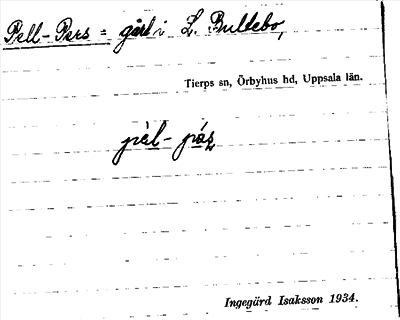 Pell-Pers = gård i L. Bultebo,
Tierps sn, Örbyhus hd, Uppsala län.
pèl - pás
Ingegärd Isaksson 1934.